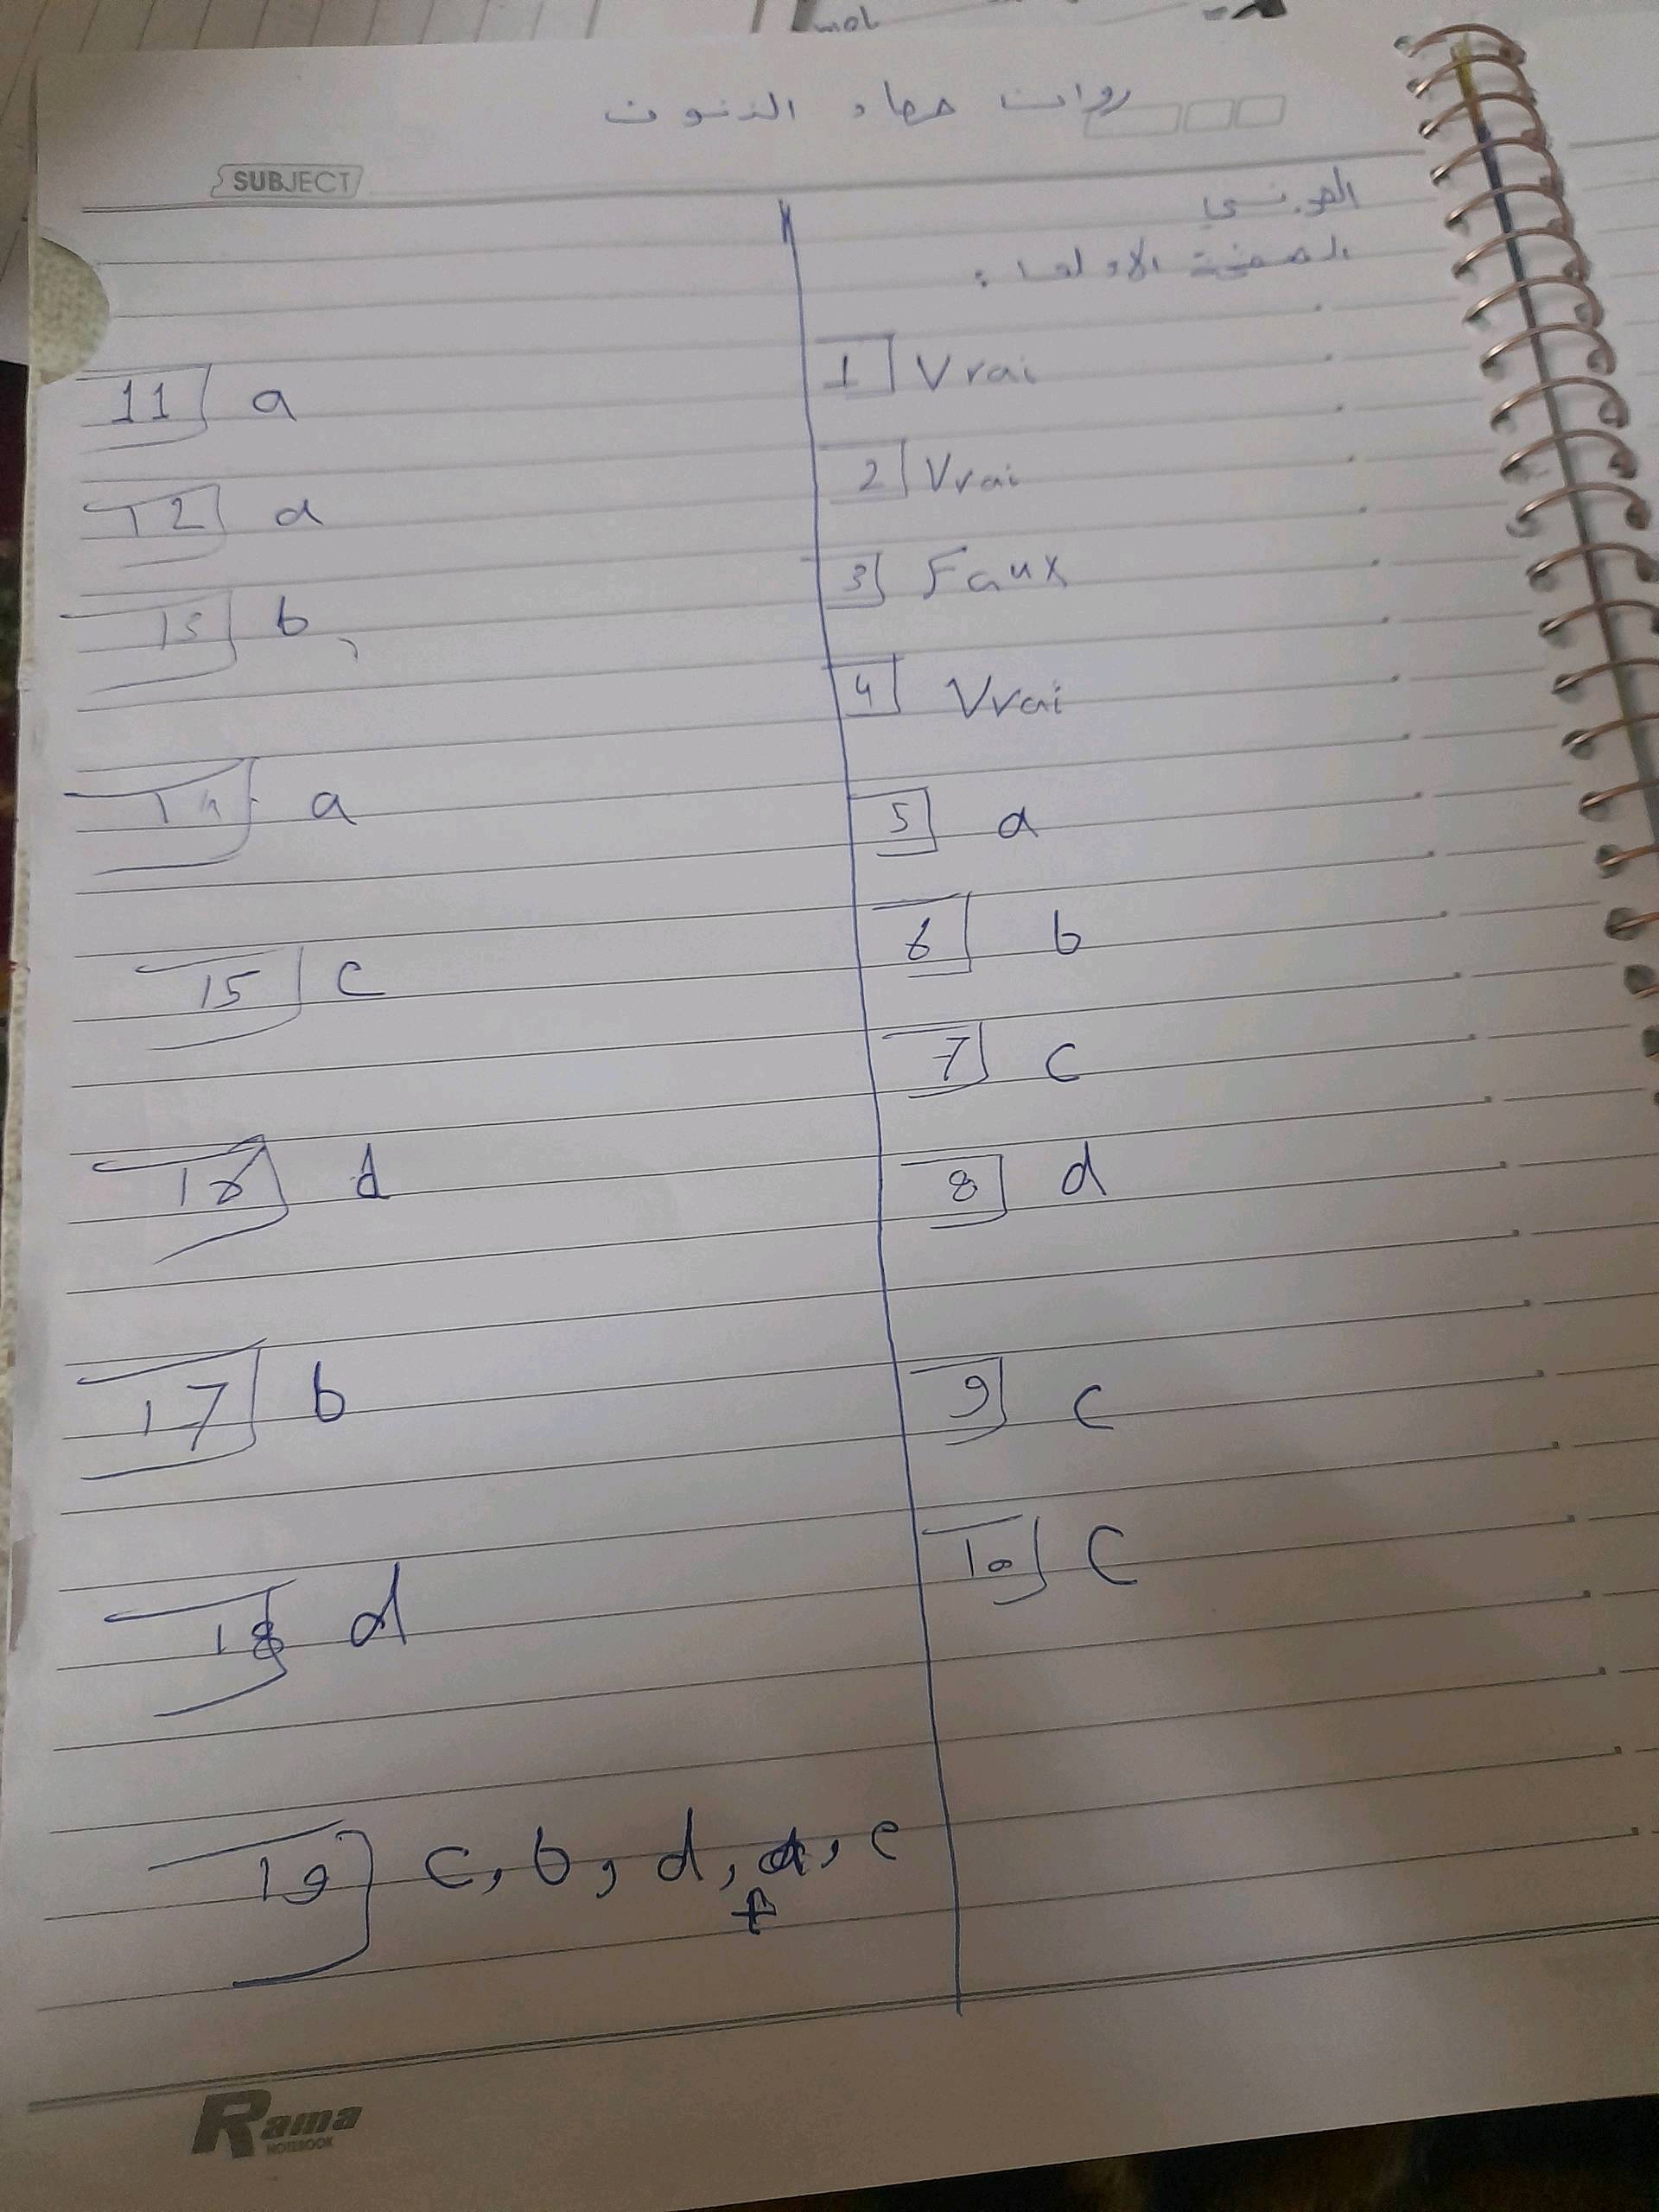 mol
روان جهاد الذنون
SUBJECT
الفرنسي
الصفحة الاولى :
1 Vrai
2 Vrai
3 Faux
4 Vrai
5 a
6 b
7 c
8 d
9 c
10 c
11 a
12 a
13 b
14 a
15 c
16 d
17 b
18 d
19 c, b, d, a, e
f
Rama
NOTEBOOK